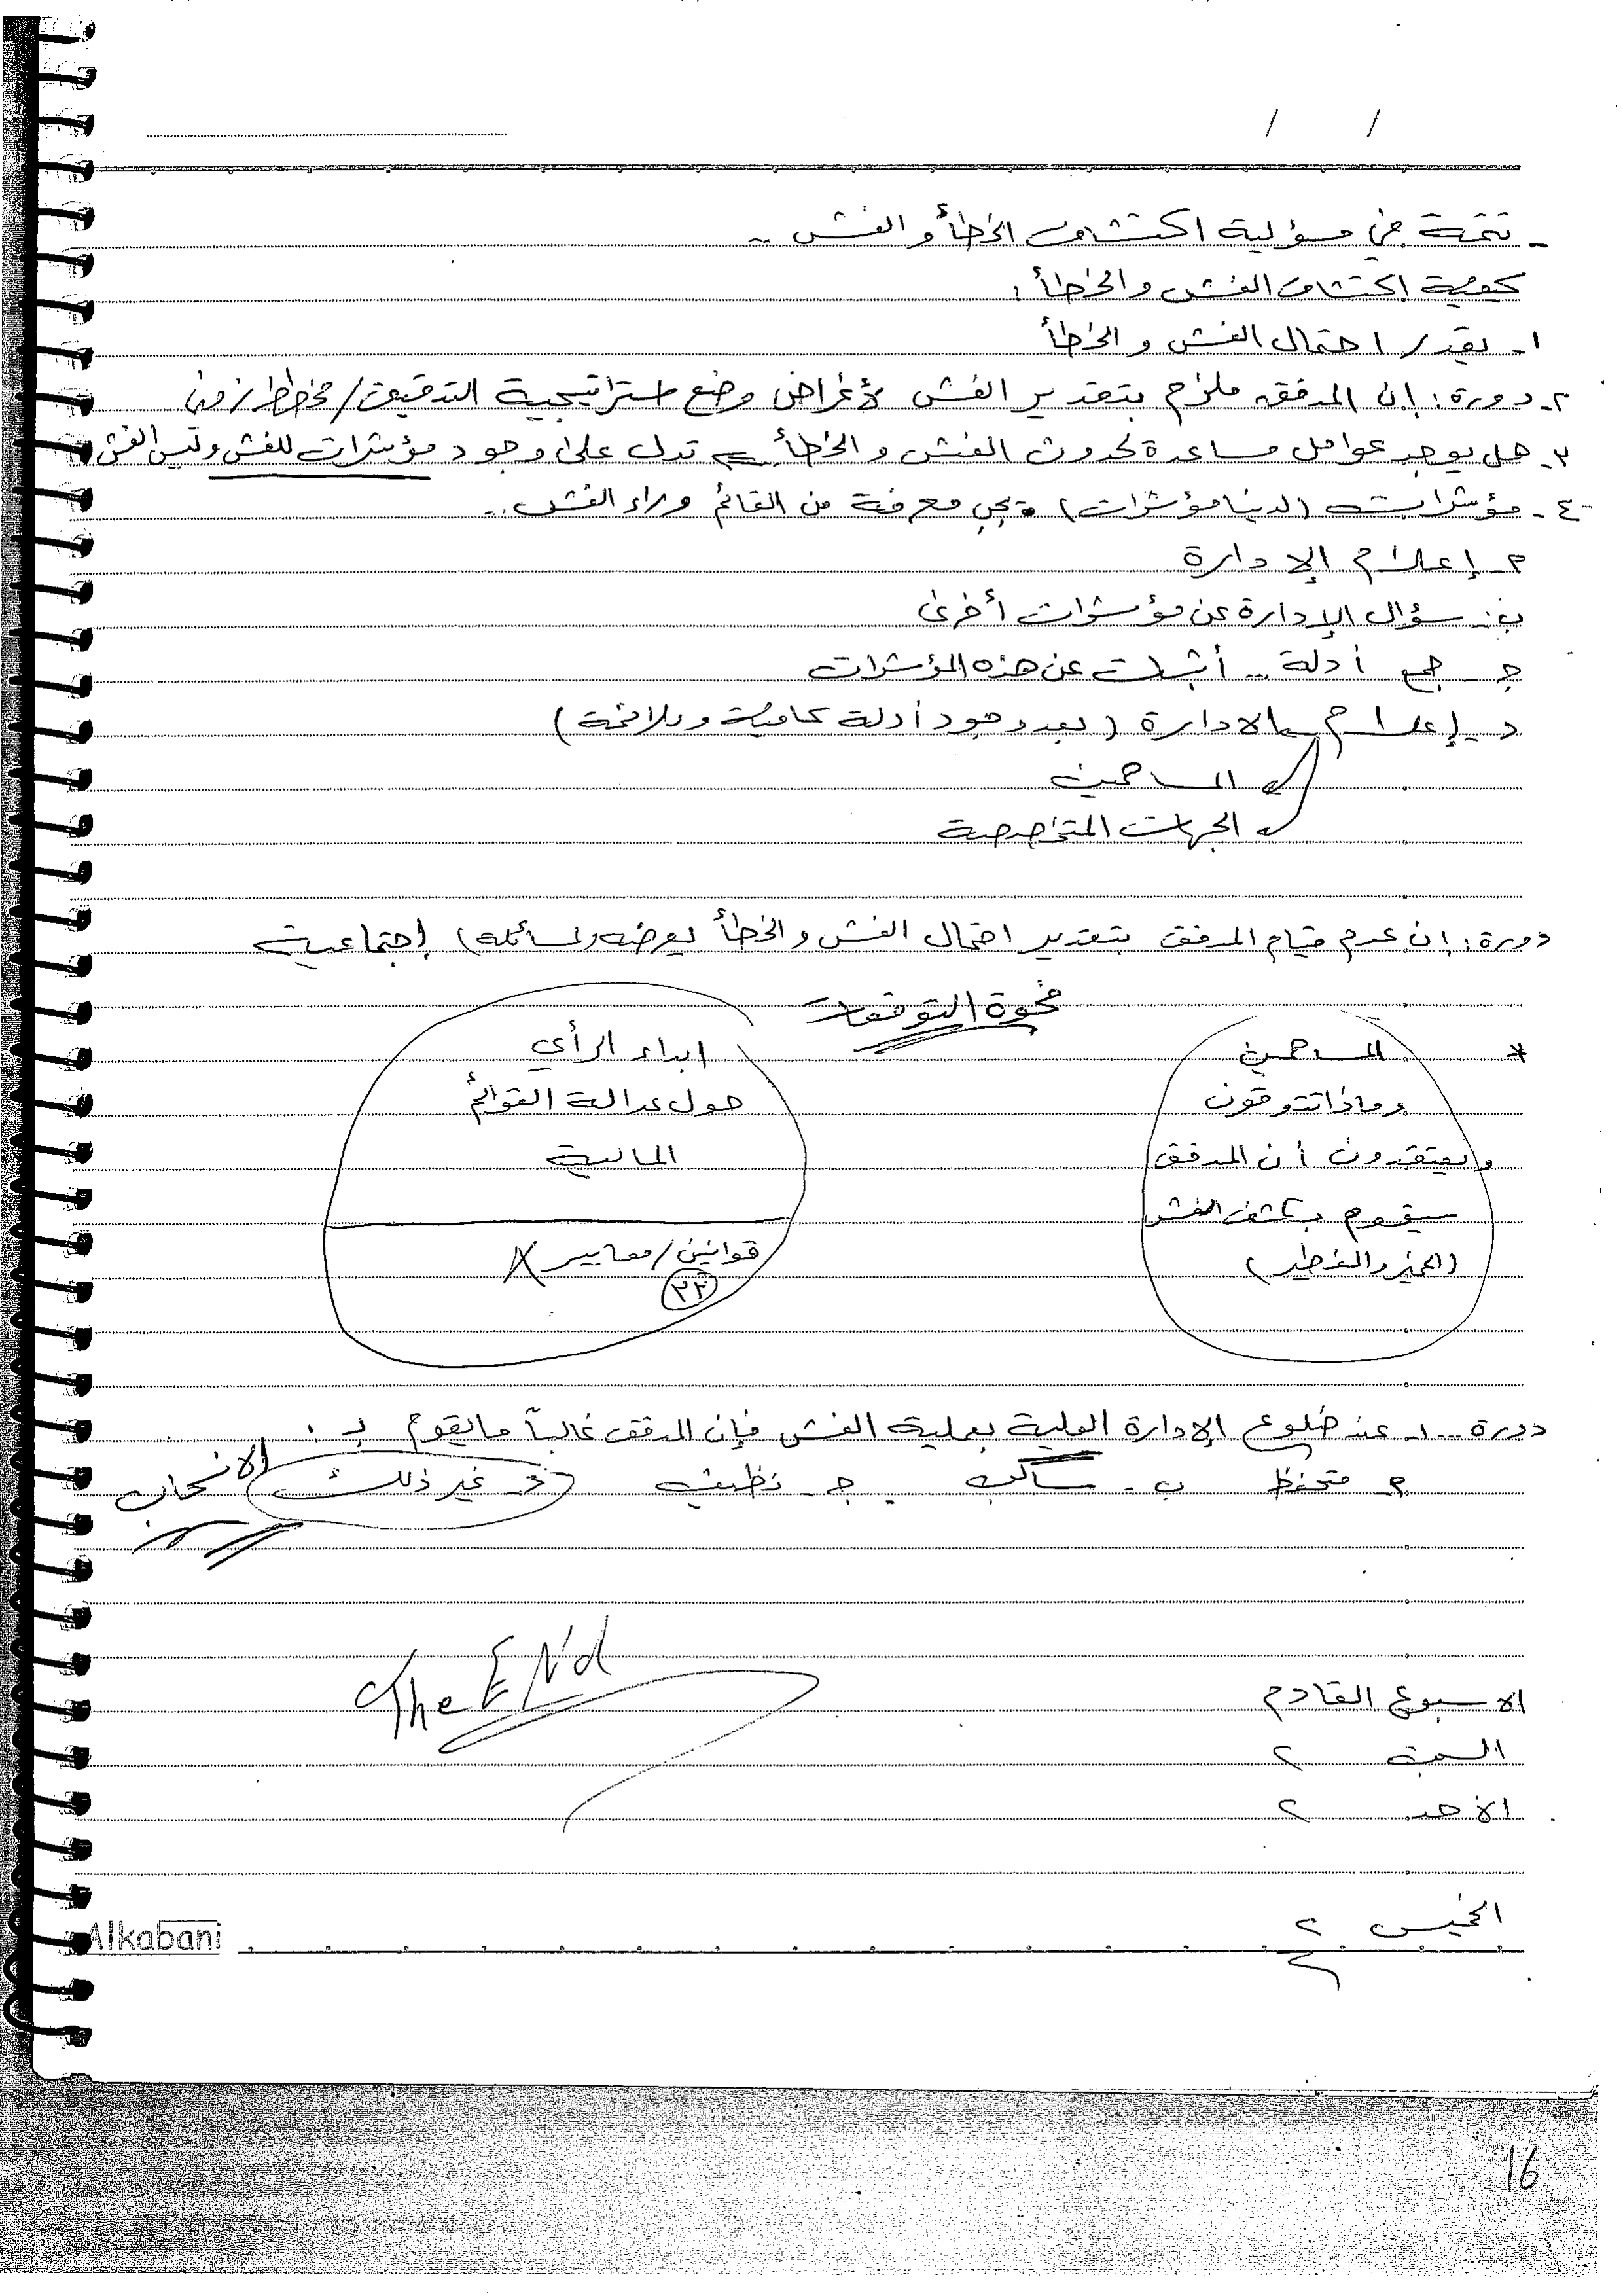 / /
- تتمة في مسؤولية اكتشاف الخطأ والغش ..
كيفية اكتشاف الغش والخطأ :
١- يقدر احتمال الغش والخطأ
٢- دورة : إن المدقق ملزم بتقدير الغش لأغراض وضع استراتيجية التدقيق / مخطط زمني
٣- هل يوجد عوامل مساعدة لحدوث الغش والخطأ تدل على وجود مؤشرات للغش وليس الغش
٤- مؤشرات (لدينا مؤشرات) يجب معرفة من القائم وراء الغش ..
٢- إعلام الإدارة
ب- سؤال الإدارة عن مؤشرات أخرى
ج- جمع أدلة .. أثبات عن هذه المؤشرات
د- إعلام الادارة (بعد وجود أدلة كافية وملائمة)
المساهمين
الجهات المتخصصة
دورة : ان عدم قيام المدقق بتقدير احتمال الغش والخطأ يعرضه (لمسائلة) إجتماعية
فجوة التوقعات
* المساهمين
وماذا تتوقون
ويعتقدون أن المدقق
سيقوم بكشف الغش
ابداء الرأي
حول عدالة القوائم
المالية
قوانين / معايير
٢٢
دورة .. ١- عند ضلوع الإدارة العلية بعملية الغش فإن المدقق غالباً ما يقوم بـ :
٢- متحفظ ب- سالب ج- نظيف د- غير ذلك الانسحاب
The ENd
الاسبوع القادم
السبت ٢
الأحد ٢
الخميس ٢
Alkabani
16